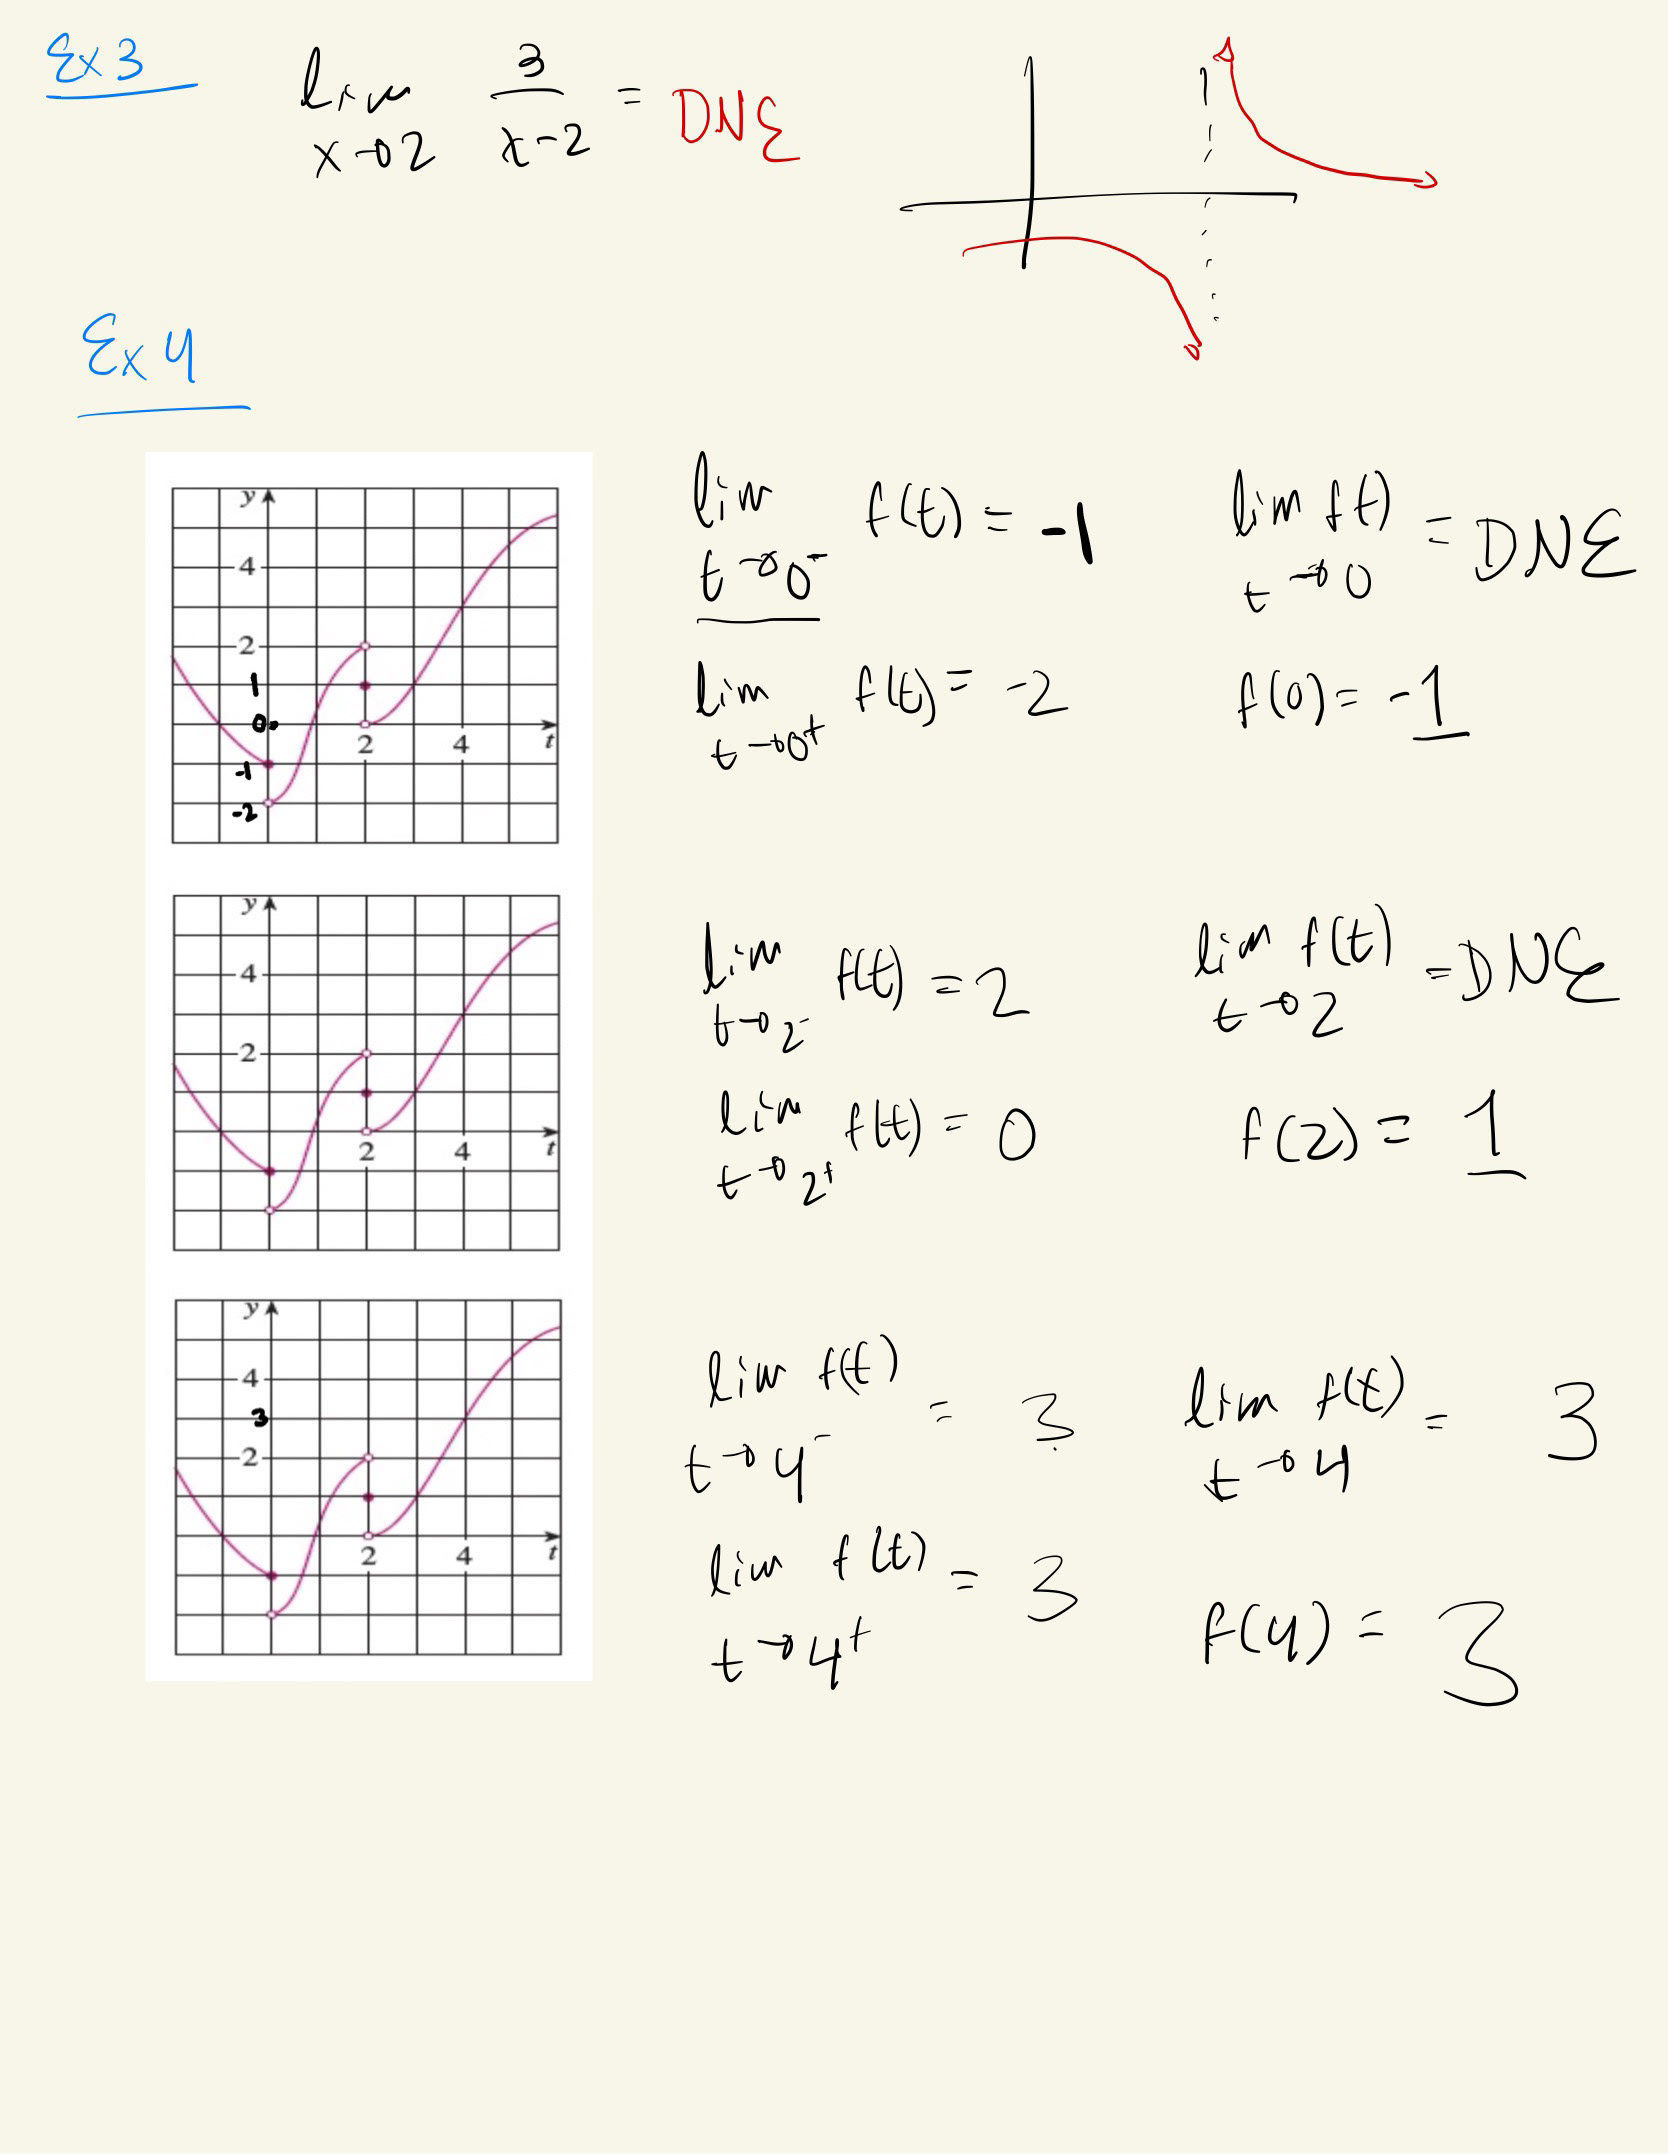 Ex 3
lim x→2 3/(x-2) = DNE
Ex 4
y
4
2
1
0
-1
-2
2 4 t
lim t→0⁻ f(t) = -1
lim t→0 f(t) = DNE
lim t→0⁺ f(t) = -2
f(0) = -1
y
4
2
2 4 t
lim t→2⁻ f(t) = 2
lim t→2 f(t) = DNE
lim t→2⁺ f(t) = 0
f(2) = 1
y
4
3
2
2 4 t
lim t→4⁻ f(t) = 3
lim t→4 f(t) = 3
lim t→4⁺ f(t) = 3
f(4) = 3